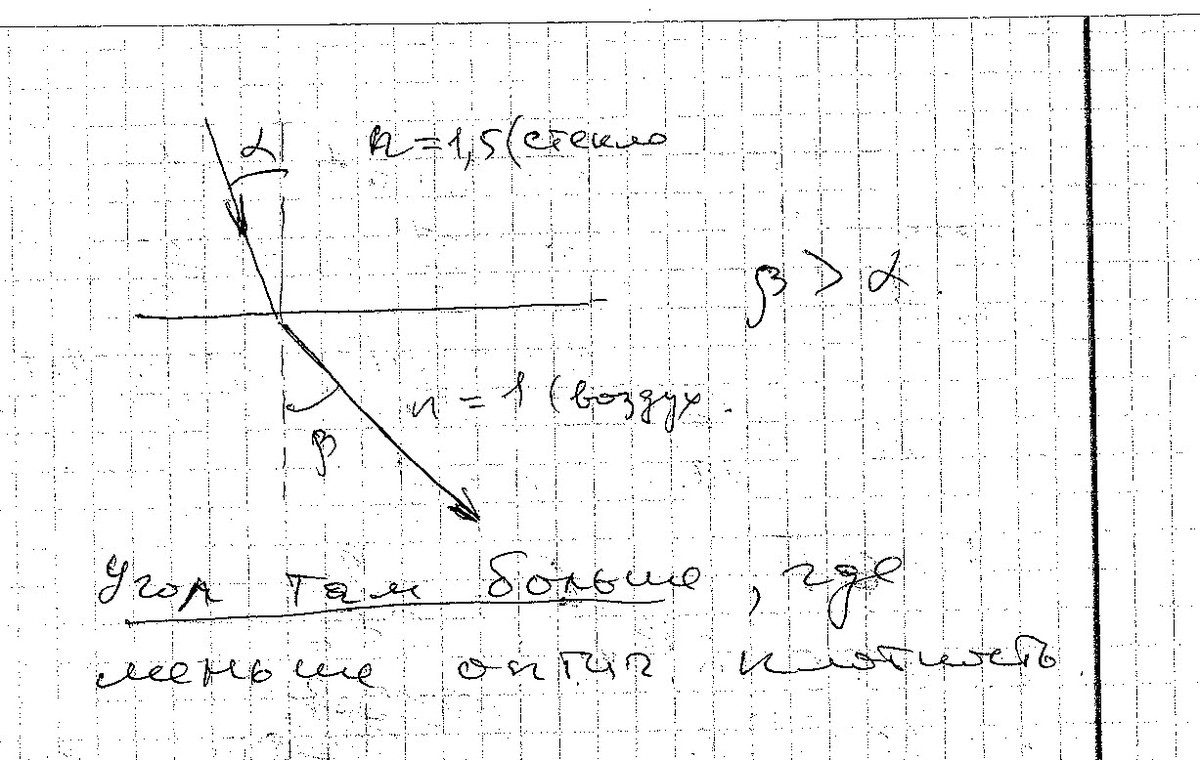 α
n=1,5(стекло
β > α
n = 1 (воздух.
β
Угол там больше, где
меньше оптич. плотность.